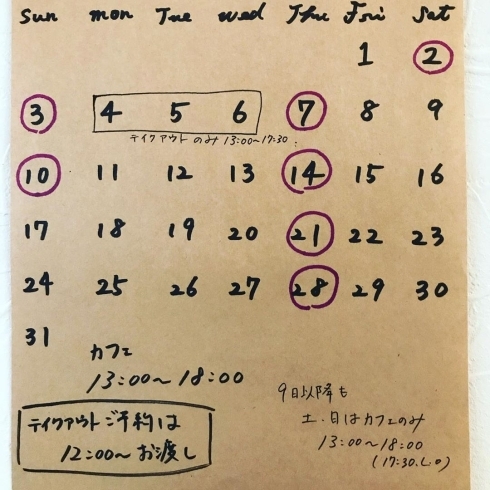 Sun mon Tue wed Thu Fri Sat
1 2
3 4 5 6 7 8 9
テイクアウトのみ 13:00~17:30
10 11 12 13 14 15 16
17 18 19 20 21 22 23
24 25 26 27 28 29 30
31
カフェ
13:00~18:00
テイクアウトご予約は
12:00~お渡し
9日以降も
土.日はカフェのみ
13:00~18:00
(17:30.L.o)